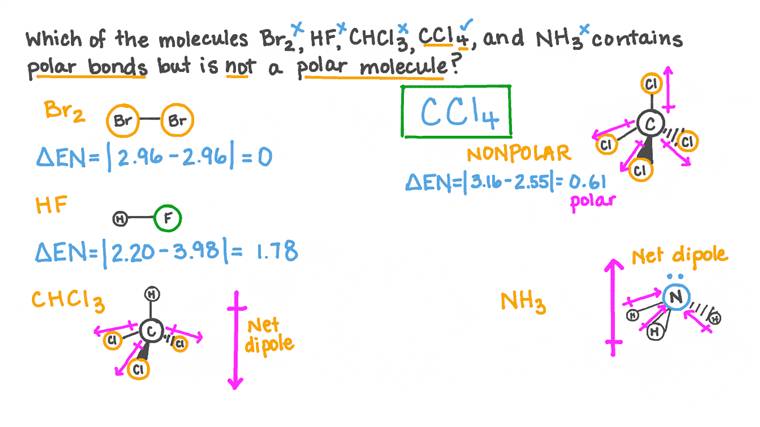 Which of the molecules Br₂ˣ, HFˣ, CHCl₃ˣ, CCl₄✓, and NH₃ˣ contains
polar bonds but is not a polar molecule?
Br₂
Br Br
ΔEN=|2.96-2.96|=0
HF
H F
ΔEN=|2.20-3.98|= 1.78
CHCl₃
H
C
Cl Cl
Cl
Net
dipole
CCl₄
NONPOLAR
ΔEN=|3.16-2.55|=0.61
polar
Cl
C
Cl Cl
Cl
NH₃
Net dipole
N
H H
H